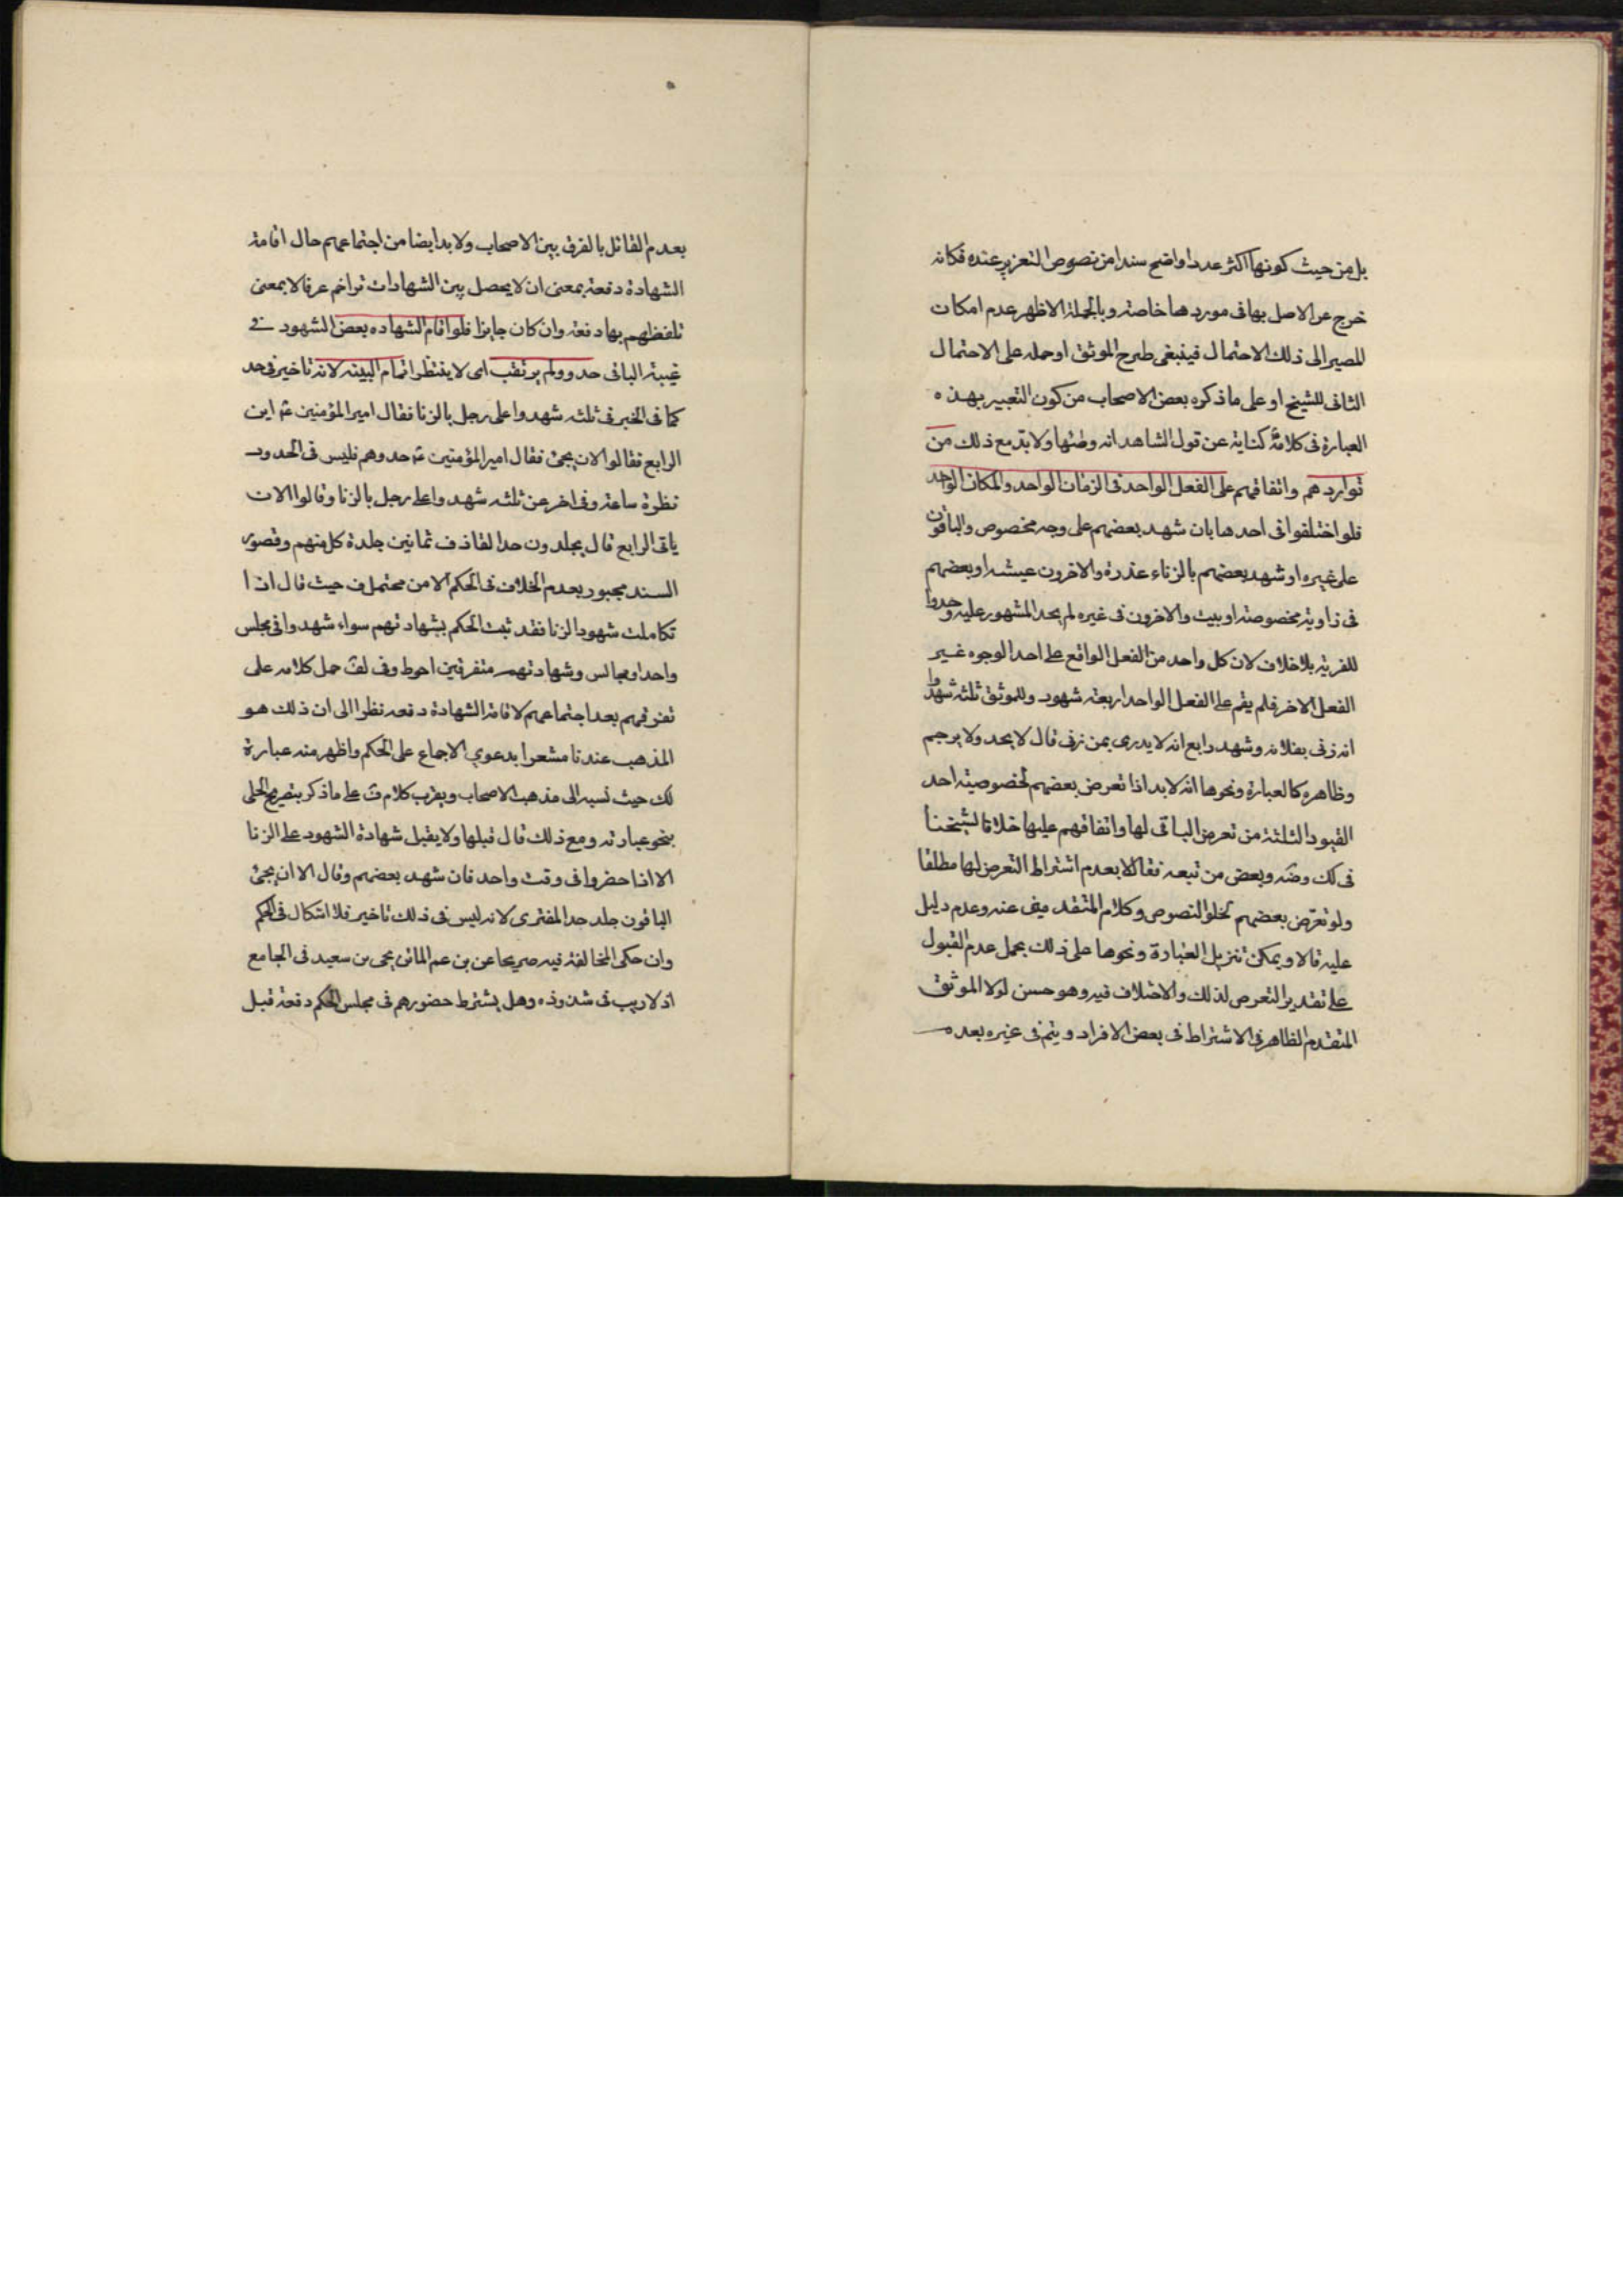 بل من حيث كونها اكثر عددا واضح سندا من نصوص التعزير عنده فكانه
خرج عن الاصل بها فى موردها خاصة وبالجملة الاظهر عدم امكان
المصير الى ذلك الاحتمال فينبغى طرح الموثق او حمله على الاحتمال
الثانى للشيخ او على ما ذكره بعض الاصحاب من كون التعبير بهذه
العبارة فى كلامه كناية عن قول الشاهد انه وطئها ولا بد مع ذلك من
تواردهم واتفاقهم على الفعل الواحد فى الزمان الواحد والمكان الواحد
فلو اختلفوا فى احدها بان شهد بعضهم على وجه مخصوص والباقون
على غيره او شهد بعضهم بالزناء غدرة والاخرون عيشه او بعضهم
فى زاوية مخصوصة او بيت والاخرون فى غيره لم يحد المشهور عليه وحدوا
للفرية بلا خلاف لان كل واحد من الفعل الواقع على احد الوجوه غير
الفعل الاخر فلم يقم على الفعل الواحد اربعة شهود وللموثق ثلثه شهدوا
انه زنى بفلانه وشهد رابع انه لا يدرى بمن زنى قال لا يحد ولا يرجم
وظاهره كالعبارة ونحوها انه لا بد اذا تعرض بعضهم لخصوصية احد
القيود الثلثة من تعرض الباقى لها واتفاقهم عليها خلافا لشيخنا
فى لك وضه وبعض من تبعه فقالا بعدم اشتراط التعرض لها مطلقا
ولو تعرض بعضهم لخلو النصوص وكلام المتقدمين عنه وعدم دليل
عليه قالا ويمكن تنزيل العبارة ونحوها على ذلك بحمل عدم القبول
على تقدير التعرض لذلك والاختلاف فيه وهو حسن لولا الموثق
المتقدم الظاهر فى الاشتراط فى بعض الافراد ويتم فى غيره بعده
بعدم القائل بالفرق بين الاصحاب ولا بد ايضا من اجتماعهم حال اقامة
الشهادة دفعة بمعنى ان لا يحصل بين الشهادات تراخ عرفا لا بمعنى
تلفظهم بها دفعة وان كان جايزا فلو اقام الشهاده بعض الشهود فى
غيبة الباقى حدوا ولم يرتقب اى لا ينتظر اتمام البينه لانه تاخير فى حد
كما فى الخبر فى ثلثه شهدوا على رجل بالزنا فقال امير المؤمنين ع اين
الرابع فقالوا الان يجئ فقال امير المؤمنين ع حدوهم فليس فى الحدود
نظرة ساعة وفى اخر عن ثلثه شهدوا على رجل بالزنا وقالوا الان
ياتى الرابع قال يجلدون حد القاذف ثمانين جلدة كل منهم وقصور
السند مجبور بعدم الخلاف فى الحكم الا من محتمل ف حيث قال اذا
تكاملت شهود الزنا فقد ثبت الحكم بشهادتهم سواء شهدوا فى مجلس
واحد او مجالس وشهادتهم متفرقين احوط وفى لف حمل كلامه على
تفرقهم بعد اجتماعهم لاقامة الشهادة دفعه نظرا الى ان ذلك هو
المذهب عندنا مشعرا بدعوى الاجماع على الحكم واظهر منه عبارة
لك حيث نسبه الى مذهب الاصحاب ويقرب كلام ف على ما ذكر بتصريح الحلى
بنحو عبارته ومع ذلك قال قبلها ولا يقبل شهادة الشهود على الزنا
الا اذا حضروا فى وقت واحد فان شهد بعضهم وقال الا ان يجئ
الباقون جلد حد المفترى لانه ليس فى ذلك تاخير فلا اشكال فى الحكم
وان حكى المخالفة فيه صريحا عن بن عم الماتن يحيى بن سعيد فى الجامع
اذ لا ريب فى شذوذه وهل يشترط حضورهم فى مجلس الحكم دفعة قبل